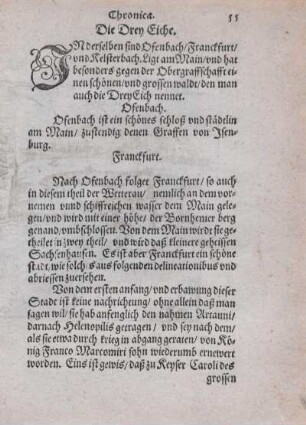 Chronica. 55
Die Drey Eiche.
IN derselben sind Ofenbach/Franckfurt/
vnd Kelsterbach. Ligt am Main/vnd hat
besonders gegen der Obergraffschafft ei-
nen schönen/vnd grossen waldt/den man
auch die Drey Eich nennet.
Ofenbach.
Ofenbach ist ein schönes schloß vnd städelin
am Main/ zustendig denen Graffen von Isen-
burg.
Franckfurt.
Nach Ofenbach folget Franckfurt/ so auch
in diesem theil der Weterau/ nemlich an dem vor-
nemen vnnd schiffreichen wasser dem Main gele-
gen/vnd wird mit einer höhe/ der Bornhemer berg
genand/vmbschlossen. Von dem Main wirdt sie ge-
theilet in zwey theil/ vnd wird daß kleinere geheissen
Sachsenhausen. Es ist aber Franckfurt ein schöne
stadt, wie solchs aus folgenden delineationibus vnd
abriessen zuersehen.
Von dem ersten anfang/ vnd erbawung dieser
Stadt ist keine nachrichtung/ ohne allein daß man
sagen wil/ sie hab anfenglich den nahmen Artauni/
darnach Helenopilis getragen/ vnd sey nach dem/
als sie etwa durch krieg in abgang geraten/ von Kö-
nig Franco Marcomiri sohn wiederumb ernewert
worden. Eins ist gewis/ daß zu Keyser Caroli des
grossen